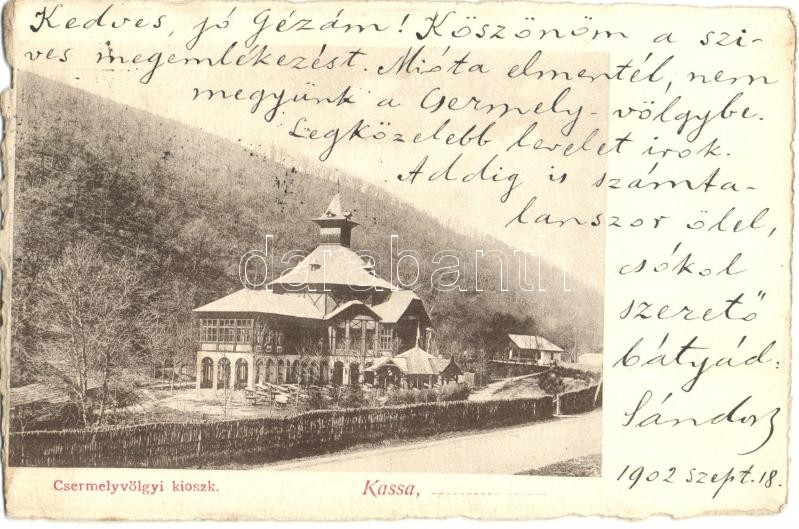 Kedves, jó Gézám! Köszönöm a szi-
ves megemlékezést. Mióta elmentél, nem
megyünk a Csermely-völgybe.
Legközelebb levelet irok.
Addig is számta-
lanszor ölel,
csókol
szerető
bátyád:
Sándor
1902 szept. 18.
darabanth
Csermelyvölgyi kioszk.
Kassa,